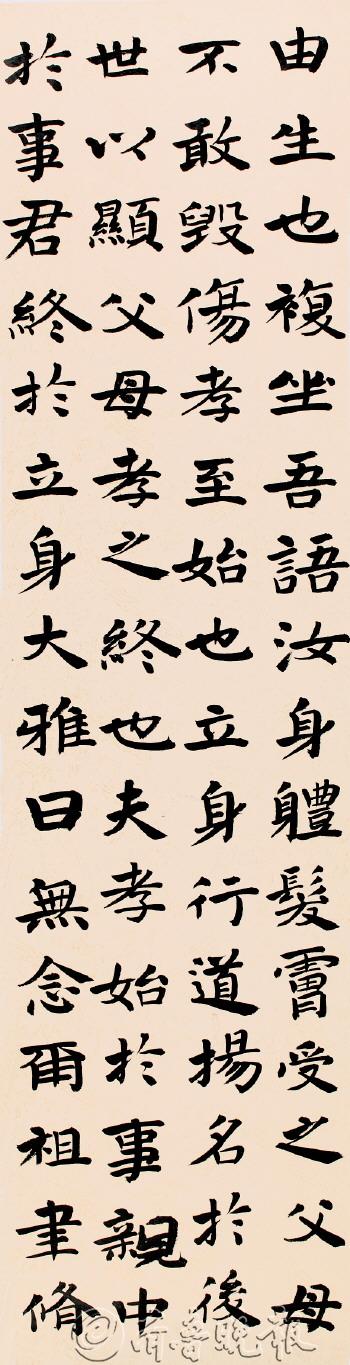 由生也複坐吾語汝身軆髮膚受之父母
不敢毀傷孝至始也立身行道揚名於後
世以顯父母孝之終也夫孝始於事親中
於事君終於立身大雅曰無念爾祖聿脩
@齐鲁晚报